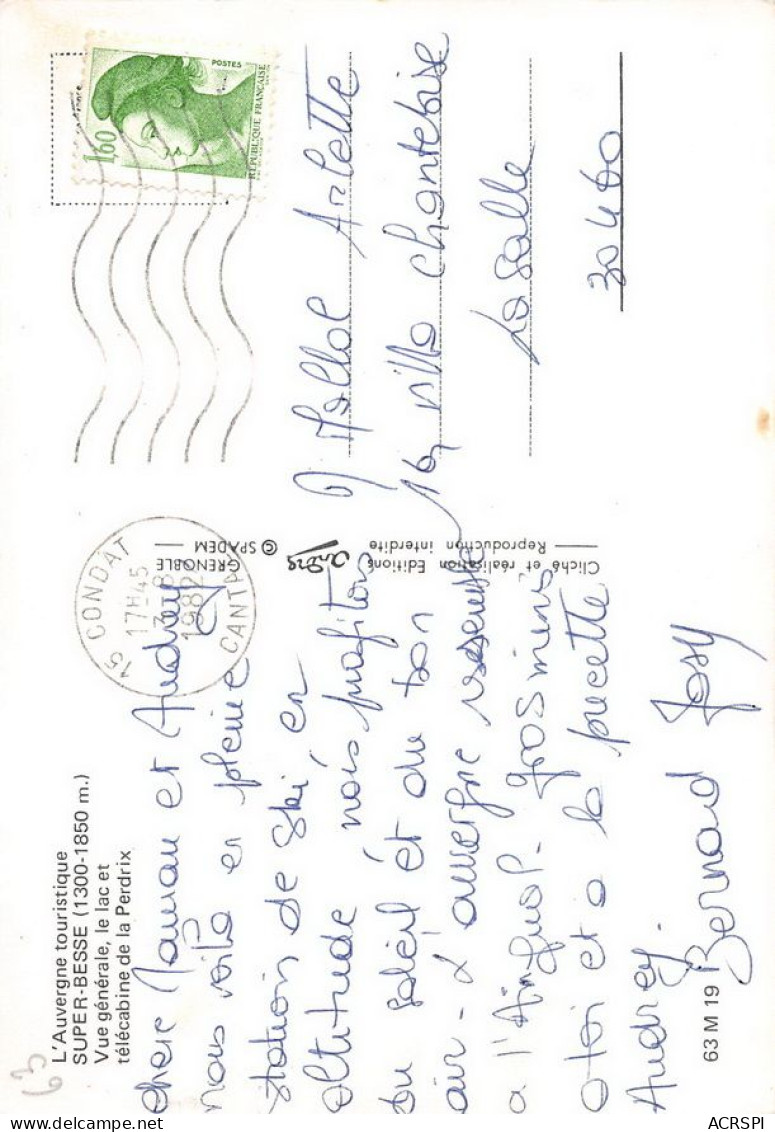 63
L'Auvergne touristique
SUPER-BESSE (1300-1850 m.)
Vue générale, le lac et
télécabine de la Perdrix
chere Maman et Audrey
nous voila en pleine
station de ski en
altitude nois profitons
du soleil et du bon
air - L'auvergne resemble
a l'Aingual - gros mimis
a toi et a la pucette
Audrey.
Bernard Josy
63 M 19
15 CONDAT
17H45
3-8
1982
CANTAL
GRENOBLE
© SPADEM
andré
Cliché et réalisation Editions
Reproduction interdite
POSTES
1,60
REPUBLIQUE FRANÇAISE
Mallol Arlette
16 villa chantebise
Lasalle
30460
ACRSPI